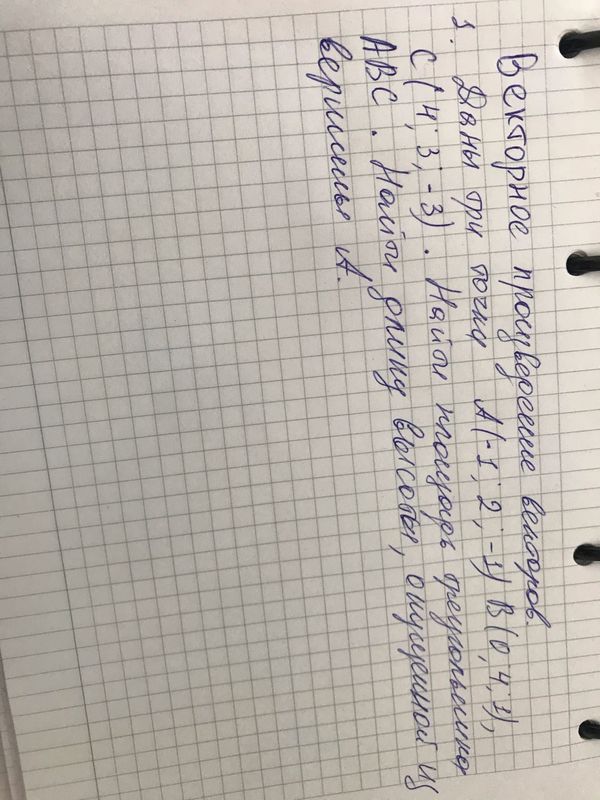 Векторное произведение векторов.
1. Даны три точки A(-1; 2; -1) B(0; 4; 3),
C (4; 3; -3). Найти площадь треугольника
ABC. Найти длину высоты, опущенной из
вершины A.